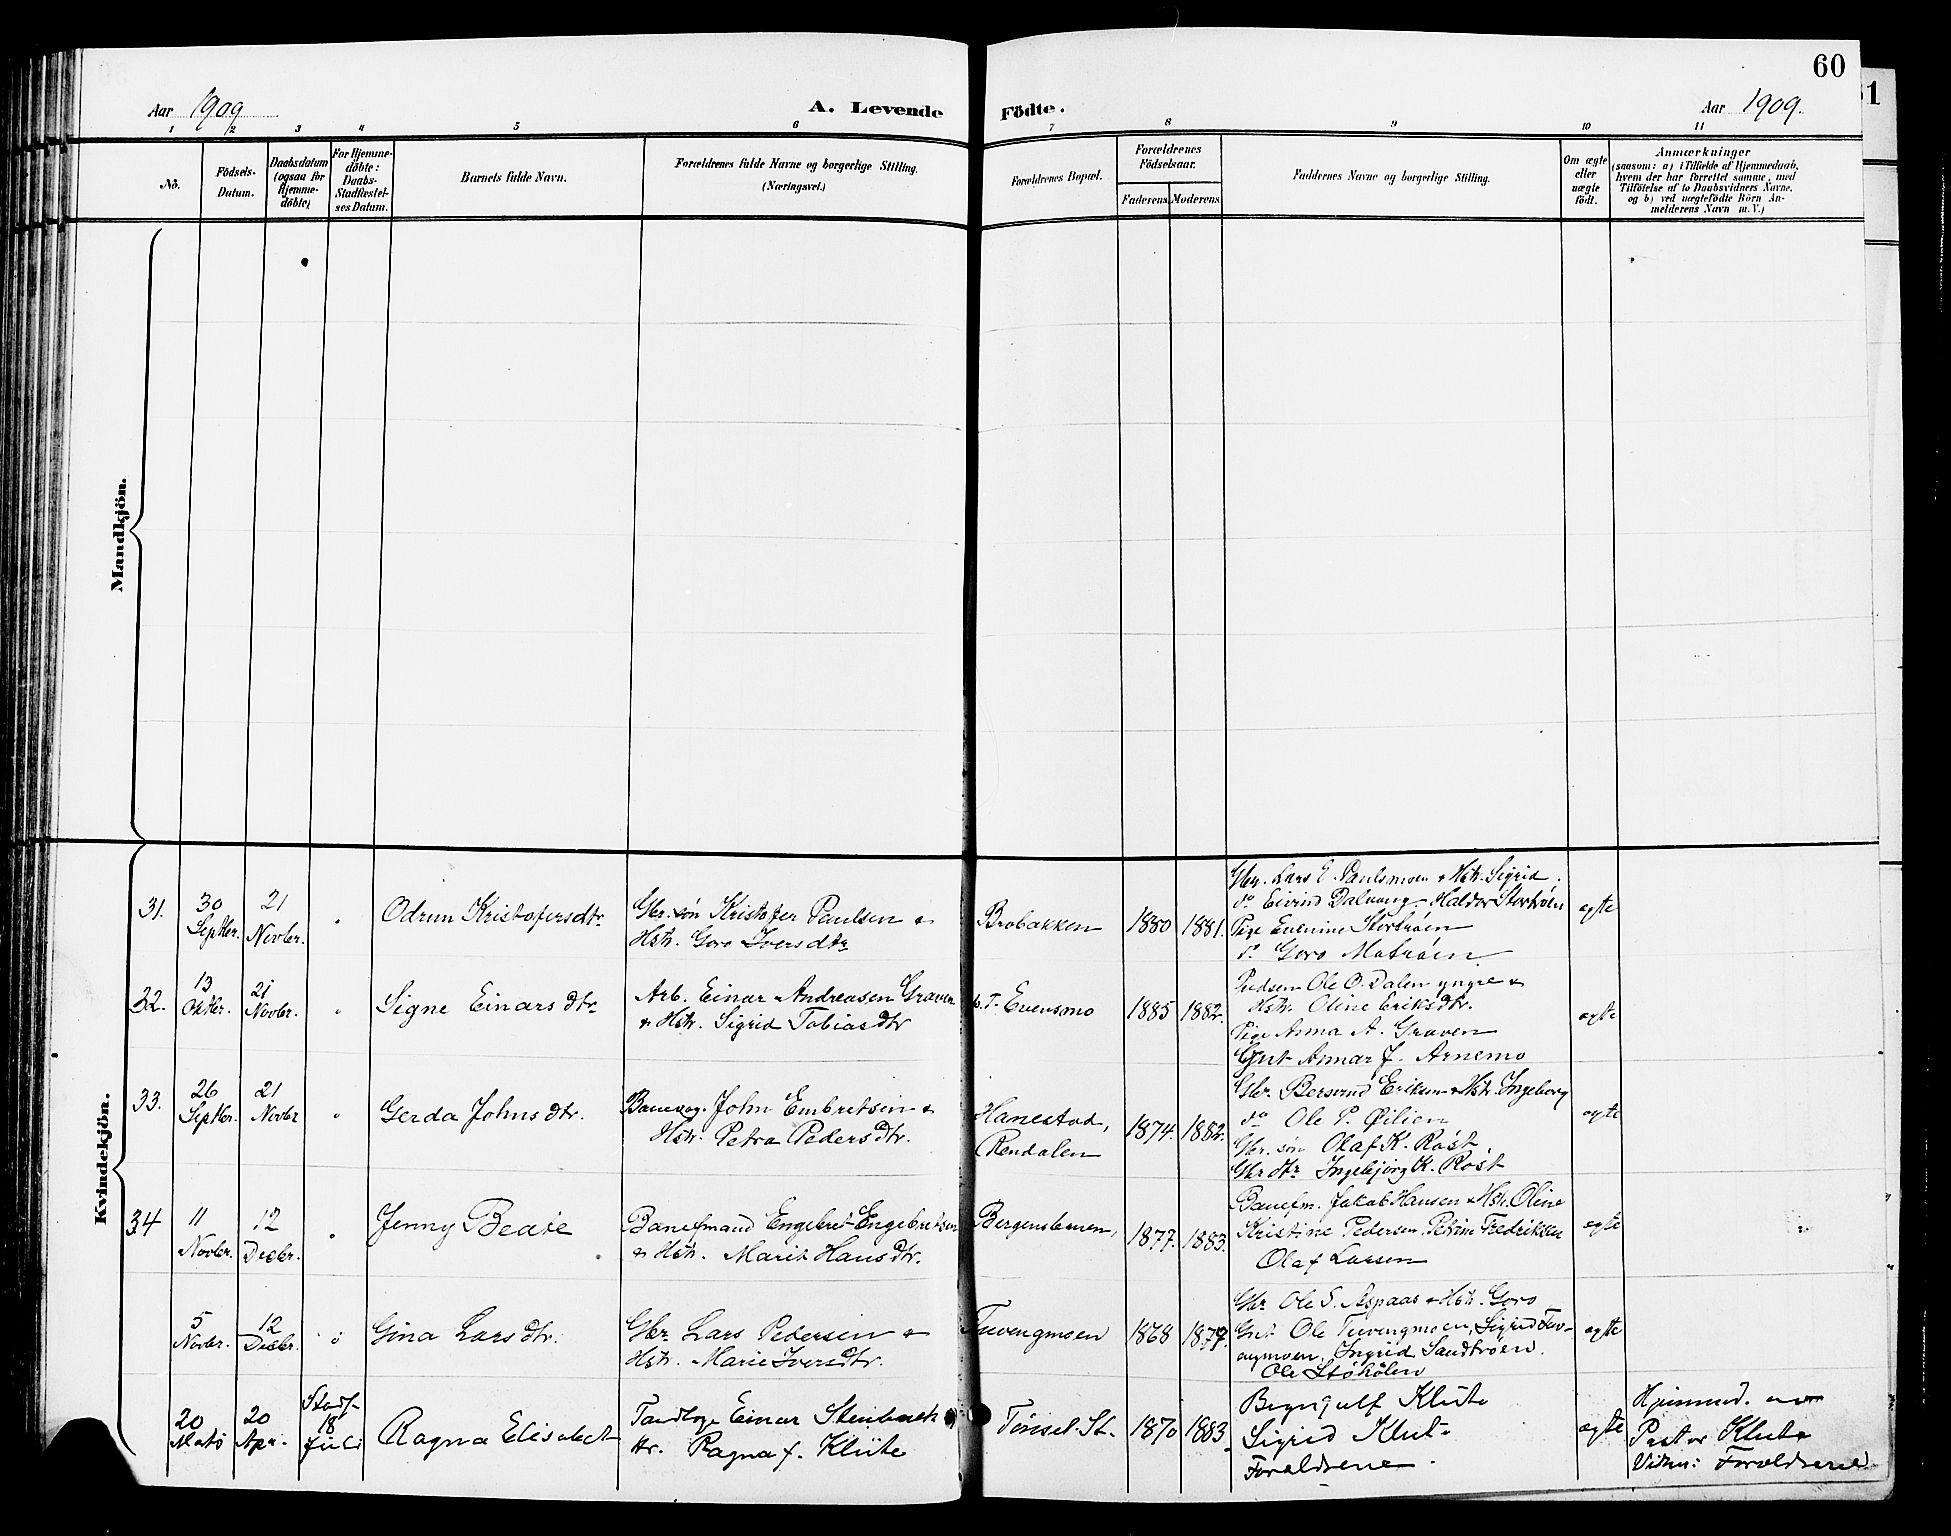 60
Aar 1909
A. Levende
Födte.
Aar 1909.
1 2 3 4 5 6 7 8 9 10 11
No.
Födsels-
Datum.
Daabsdatum
(ogsaa for
Hjemme-
döbte)
For Hjemme-
döbte:
Daabs-
Stadfæstel-
ses Datum.
Barnets fulde Navn.
Forældrenes fulde Navne og borgerlige Stilling.
(Næringsvei.)
Forældrenes Bopæl.
Forældrenes
Födselsaar.
Faderens
Moderens
Faddernes Navne og borgerlige Stilling.
Om ægte
eller
uægte
födt.
Anmærkninger
(saasom: a) i Tilfælde af Hjemmedaab,
hvem der har forrettet samme, med
Tilföielse af to Daabsvidners Navne,
og b) ved uægtefödte Börn An-
melderens Navn m. V.)
Mandkjön.
Kvindekjön.
31.
30
Septbr.
21
Novbr.
"
Odrun Kristofersdtr.
Gbr. søn Kristofer Paulsen &
Hstr. Goro Iversdtr
Brobakken
1880
1881.
Gbr. Lars E. Paulsmoen & Hstr. Sigrid.
do Eivind Dalvang Haldor Stortrøen
Pige Evenine Stortrøen
do Goro Motrøen
ægte
32.
13
Oktbr.
21
Novbr.
"
Signe Einarsdtr
Arb. Einar Andreasen Graven
& Hstr. Sigrid Tobiasdtr
p. T. Evensmo
1885
1882.
Ole O. Dalen yngre &
Hstr. Oline Eriksdtr.
Pige Anna A. Graven
Gut Annar J. Arnemo
ægte
33.
26
Septbr.
21
Novbr
"
Gerda Johnsdtr.
Banevog. John Embretsen &
Hstr. Petra Pedersdtr.
Hanestad,
Rendalen
1874.
1882.
Gbr. Bersvend Eriksen & Hstr. Ingeborg
do Ole P. Øilien
Gbr. søn Olaf K. Røst
Gbr dtr Ingebjørg K. Røst
ægte
34
11
Novbr.
12
Decbr.
"
Jenny Beate
Banefmand Engebret Engebretsen
& Hstr. Marit Hansdtr.
1877.
1883.
Banefm. Jakob Hansen & Hstr. Oline
Kristine Pedersen. Petrine Fredriksen
Olaf Larsen
ægte
5
Novbr.
12
Decbr.
"
Gina Larsdtr.
Gbr Lars Pedersen &
Hstr. Marie Iversdtr.
Tuvengmoen
1868
1877.
Gbr Ole S. Aspaas & Hstr. Goro
Gut Ole Tuvengmoen, Sigrid Tuv-
engmoen, Ingrid Sandtrøen.
Ole Støhølen
ægte
20
Mats
20
Apr.
Stadf.
18
Juli
Ragna Elisabet
Tandlæge Einar Steinbach
Ragna f. Klüte
Tønset St.
1870
1883
Klüte
Sigrid Klüte
Forældrene.
ægte
Hjemmed. av
Pastor Klüte
Vidner: Forældrene